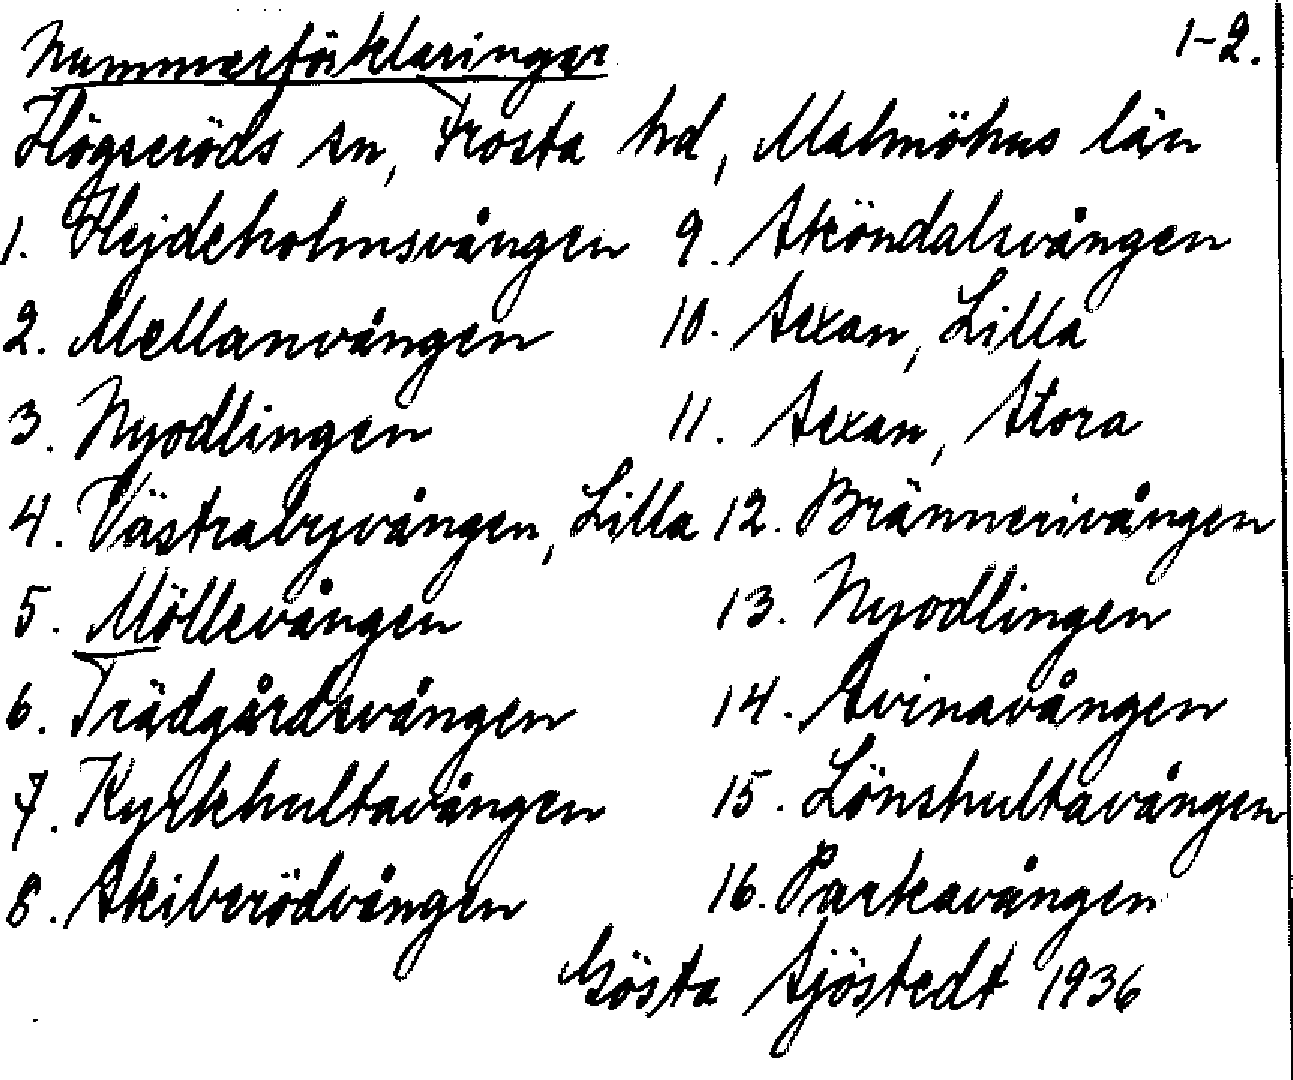 Nummerförklaringar 1-2.
Högseröds sn, Frosta hd, Malmöhus län
1. Hejdeholmsvången
2. Mellanvången
3. Nyodlingen
4. Västrabyvången, Lilla
5. Möllevången
6. Trädgårdsvången
7. Kyrkhultavången
8. Skiberödvången
9. Sköndalsvången
10. Sexan, Lilla
11. Sexan, Stora
12. Brännerivången
13. Nyodlingen
14. Svinavången
15. Lönshultavången
16. Parkavången
Gösta Sjöstedt 1936